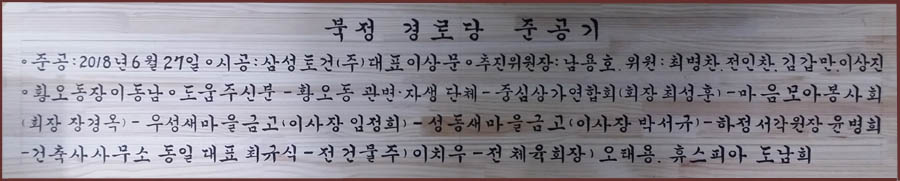 북정 경로당 준공기
◦준공:2018년6월27일◦시공:삼성토건(주)대표이상문◦추진위원장:남용호. 위원:최병찬.전인찬.김갑만.이상진
◦황오동장이동남◦도움주신분-황오동 관변·자생 단체-중심상가연합회(회장최성훈)-마음모아봉사회
(회장 장경옥)-우성새마을금고(이사장 임정희)-성동새마을금고(이사장 박서규)-하정서각원장윤병희
-건축사사무소 동일 대표 최규식-전건물주)이치우-전체육회장)오태용. 휴스피아 도남희